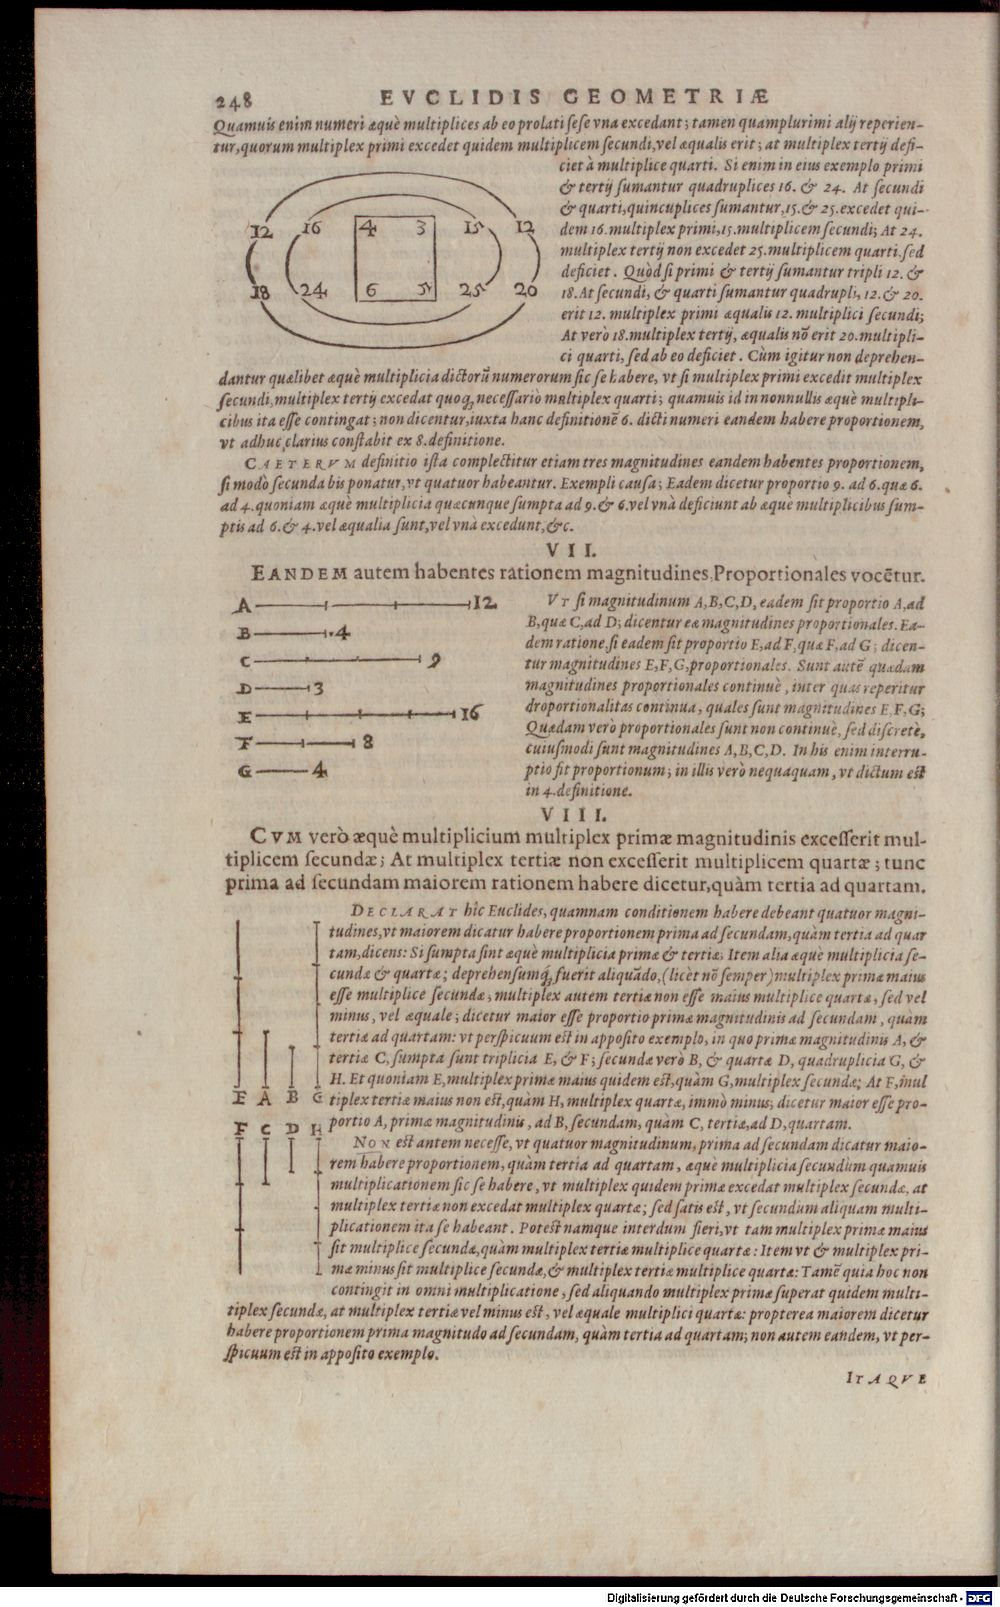 248 EVCLIDIS GEOMETRIÆ
Quamuis enim numeri æquè multiplices ab eo prolati sese vna excedant; tamen quamplurimi alij reperien-
tur, quorum multiplex primi excedet quidem multiplicem secundi, vel æqualis erit; at multiplex tertij defi-
ciet à multiplice quarti. Si enim in eius exemplo primi
& tertij sumantur quadruplices 16. & 24. At secundi
& quarti, quincuplices sumantur, 15. & 25. excedet qui-
dem 16. multiplex primi, 15. multiplicem secundi; At 24.
multiplex tertij non excedet 25. multiplicem quarti. sed
deficiet. Quòd si primi & tertij sumantur tripli 12. &
18. At secundi, & quarti sumantur quadrupli, 12. & 20.
erit 12. multiplex primi æqualis 12. multiplici secundi;
At verò 18. multiplex tertij, æqualis nõ erit 20. multipli-
ci quarti, sed ab eo deficiet. Cùm igitur non deprehen-
12 16 4 3 15 12
18 24 6 5 25 20
dantur quælibet æquè multiplicia dictorũ numerorum sic se habere, vt si multiplex primi excedit multiplex
secundi, multiplex tertij excedat quoq; necessariò multiplex quarti; quamuis id in nonnullis æquè multipli-
cibus ita esse contingat; non dicentur, iuxta hanc definitionẽ 6. dicti numeri eandem habere proportionem,
vt adhuc clarius constabit ex 8. definitione.
CAETERVM definitio ista complectitur etiam tres magnitudines eandem habentes proportionem,
si modò secunda bis ponatur, vt quatuor habeantur. Exempli causa; Eadem dicetur proportio 9. ad 6. quæ 6.
ad 4. quoniam æquè multiplicia quæcunque sumpta ad 9. & 6. vel vnà deficiunt ab æque multiplicibus sum-
ptis ad 6. & 4. vel æqualia sunt, vel vnà excedunt, &c.
VII.
EANDEM autem habentes rationem magnitudines, Proportionales vocẽtur.
A 12
B 4
C 9
D 3
E 16
F 8
G 4
VT si magnitudinum A, B, C, D, eadem sit proportio A, ad
B, quæ C, ad D; dicentur eæ magnitudines proportionales. Ea-
dem ratione, si eadem sit proportio E, ad F, quæ F, ad G; dicen-
tur magnitudines E, F, G, proportionales. Sunt autẽ quædam
magnitudines proportionales continuè, inter quas reperitur
droportionalitas continua, quales sunt magnitudines E, F, G;
Quædam verò proportionales sunt non continuè, sed discretè,
cuiusmodi sunt magnitudines A, B, C, D. In his enim interru-
ptio fit proportionum; in illis verò nequaquam, vt dictum est
in 4. definitione.
VIII.
CVM verò æquè multiplicium multiplex primæ magnitudinis excesserit mul-
tiplicem secundæ; At multiplex tertiæ non excesserit multiplicem quartæ; tunc
prima ad secundam maiorem rationem habere dicetur, quàm tertia ad quartam.
DECLARAT hîc Euclides, quamnam conditionem habere debeant quatuor magni-
tudines, vt maiorem dicatur habere proportionem prima ad secundam, quàm tertia ad quar
tam, dicens: Si sumpta sint æquè multiplicia primæ & tertiæ, Item alia æquè multiplicia se-
cundæ & quartæ; deprehensumq; fuerit aliquãdo, (licèt nõ semper) multiplex primæ maius
esse multiplice secundæ, multiplex autem tertiæ non esse maius multiplice quartæ, sed vel
minus, vel æquale; dicetur maior esse proportio primæ magnitudinis ad secundam, quàm
tertiæ ad quartam: vt perspicuum est in apposito exemplo, in quo primæ magnitudinis A, &
tertiæ C, sumpta sunt triplicia E, & F; secundæ verò B, & quartæ D, quadruplicia G, &
H. Et quoniam E, multiplex primæ maius quidem est, quàm G, multiplex secundæ; At F, mul
tiplex tertiæ maius non est, quàm H, multiplex quartæ, immò minus; dicetur maior esse pro-
portio A, primæ magnitudinis, ad B, secundam, quàm C, tertiæ, ad D, quartam.
E A B G
F C D H
NON est autem necesse, vt quatuor magnitudinum, prima ad secundam dicatur maio-
rem habere proportionem, quàm tertia ad quartam, æquè multiplicia secundum quamuis
multiplicationem sic se habere, vt multiplex quidem primæ excedat multiplex secundæ, at
multiplex tertiæ non excedat multiplex quartæ; sed satis est, vt secundum aliquam multi-
plicationem ita se habeant. Potest namque interdum fieri, vt tam multiplex primæ maius
sit multiplice secundæ, quàm multiplex tertiæ multiplice quartæ: Item vt & multiplex pri-
mæ minus sit multiplice secundæ, & multiplex tertiæ multiplice quartæ: Tamẽ quia hoc non
contingit in omni multiplicatione, sed aliquando multiplex primæ superat quidem multi-
tiplex secundæ, at multiplex tertiæ vel minus est, vel æquale multiplici quartæ: propterea maiorem dicetur
habere proportionem prima magnitudo ad secundam, quàm tertia ad quartam; non autem eandem, vt per-
spicuum est in apposito exemplo.
ITAQVE
Digitalisierung gefördert durch die Deutsche Forschungsgemeinschaft - DFG